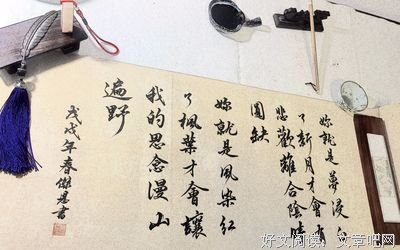 妳就是夢浸白
了新月才會有
悲歡離合陰晴
圓缺
妳就是風染紅
了楓葉才會讓
我的思念漫山
遍野
戊戌年春傑書
好文阅读，文章吧网